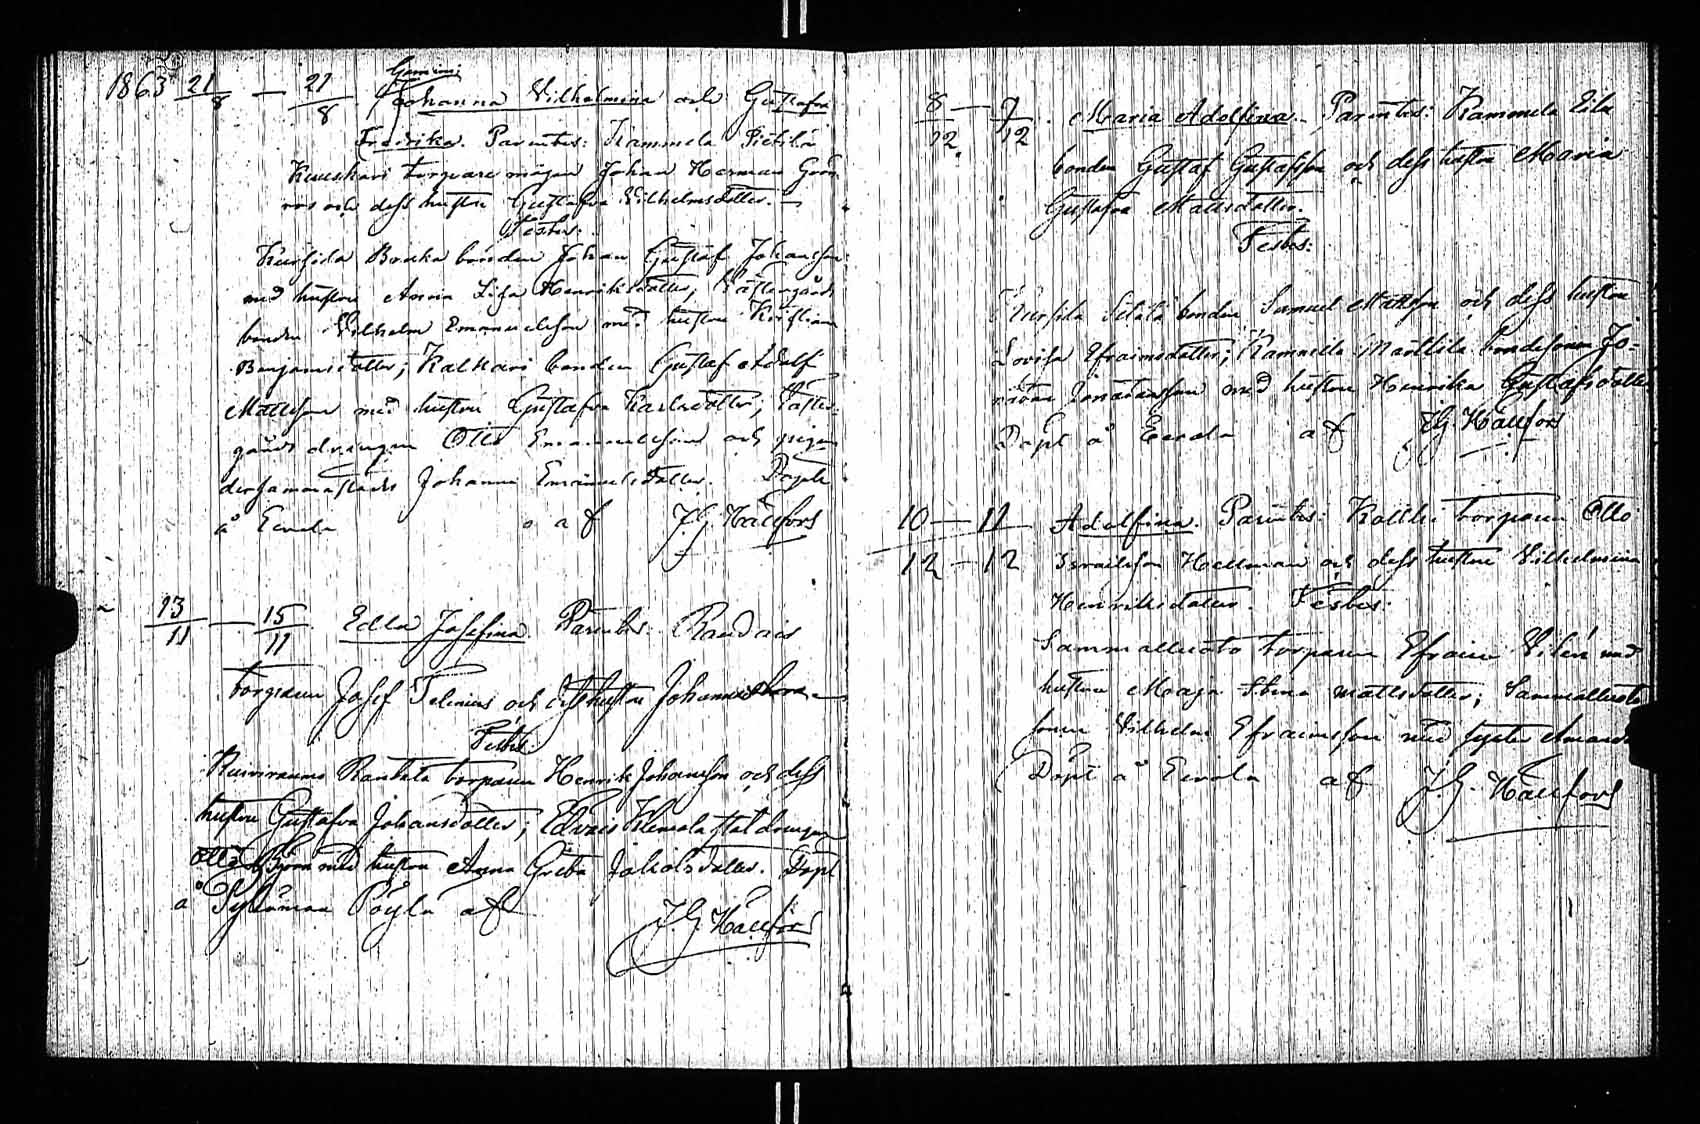 Gemini:
1863 21/8 — 21/8 Johanna Vilhelmina och Gustafva
Fredrika. Parentes: Kammela Pietilä
Kuuskari torpare mågen Johan Herman Grön
roos och dess hustru Gustafva Vilhelmsdotter. —
Testes:
Kursila Bonden Johan Gustaf Johansson
med hustru Anna Lisa Henriksdotter;
bonden Vilhelm Emanuelsson med hustru Kristiana
Benjamisdotter; Kalkari bonden Gustaf Adolf
Mattsson med hustru Gustafva Karlsdotter;
gårds drängen Otto Emanuelsson och pigan
dersammastädes Johanna Emanuelsdotter. Döpte
å Eerola af J. G. Hällfors
13/11 — 15/11 Edla Josefina. Parentes: Raudais
torparen Josef Telenius och dess hustru Johanna
Testes:
Ruinraumo Rankala torparen Henrik Johansson och dess
hustru Gustafva Johansdotter; Edvais Klemola statdrengen
Otto Björn med hustru Anna Greta Jakobsdotter. Döpt
å Pöylä af J. G. Hällfors
8/12 — 9/12. Maria Adolfina. Parentes: Kammela Eila
bonden Gustaf Gustafsson och dess hustru Maria
Gustafva Mattsdotter.
Testes:
Kursila Sitälä bonden Samuel Mattsson och dess hustru
Lovisa Efraimsdotter; Kammela Marttila bondesonen Jo-
natan Jonatansson med hustru Henrika Gustafsdotter
Döpt å Eerola af J. G. Hällfors
10/12 — 11/12 Adolfina. Parentes: Kallki torparen Otto
Israelsson Hellman och dess hustru Vilhelmina
Henriksdotter. Testes:
Sammallusto torparen Efraim Vilén med
hustru Maja Stina Mattsdotter; Sammallusto
sonen Vilhelm Efraimsson med syster Amanda
Döpt å Eerola af J. G. Hällfors